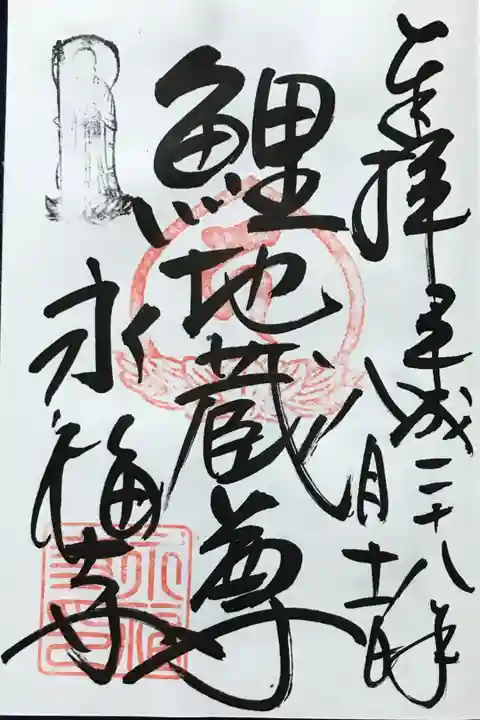 奉拝 平成二十八年
八月十一日
鯉地蔵尊
永福寺
永福寺印